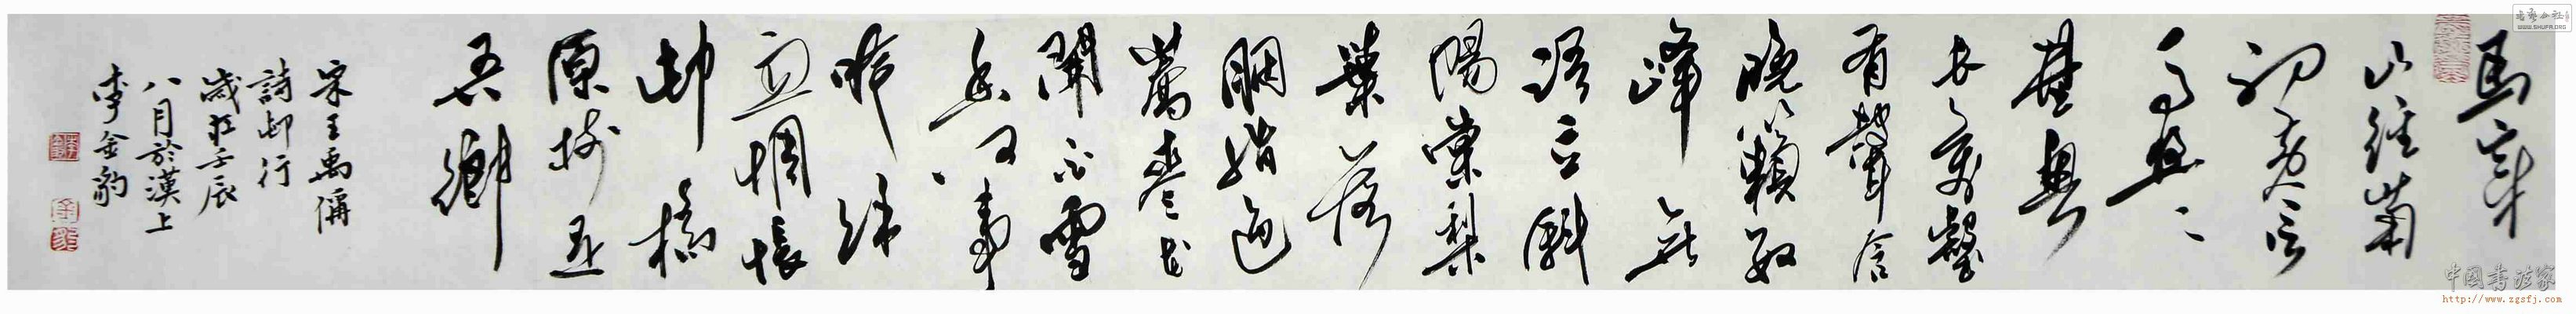 馬穿
山徑菊
初黃信
馬悠悠
埜興
長萬壑
有聲含
晚籟數
峰無
語立斜
陽棠梨
葉落
胭脂色
蕎麥花
開白雪
香何事
吟餘
忽惆悵
邨橋
原樹似
吾鄉
宋王禹偁
詩邨行
歲在壬辰
八月於漢上
李金豹
中国书法家
http://www.zgsfj.com
WWW.SHUFA.ORG